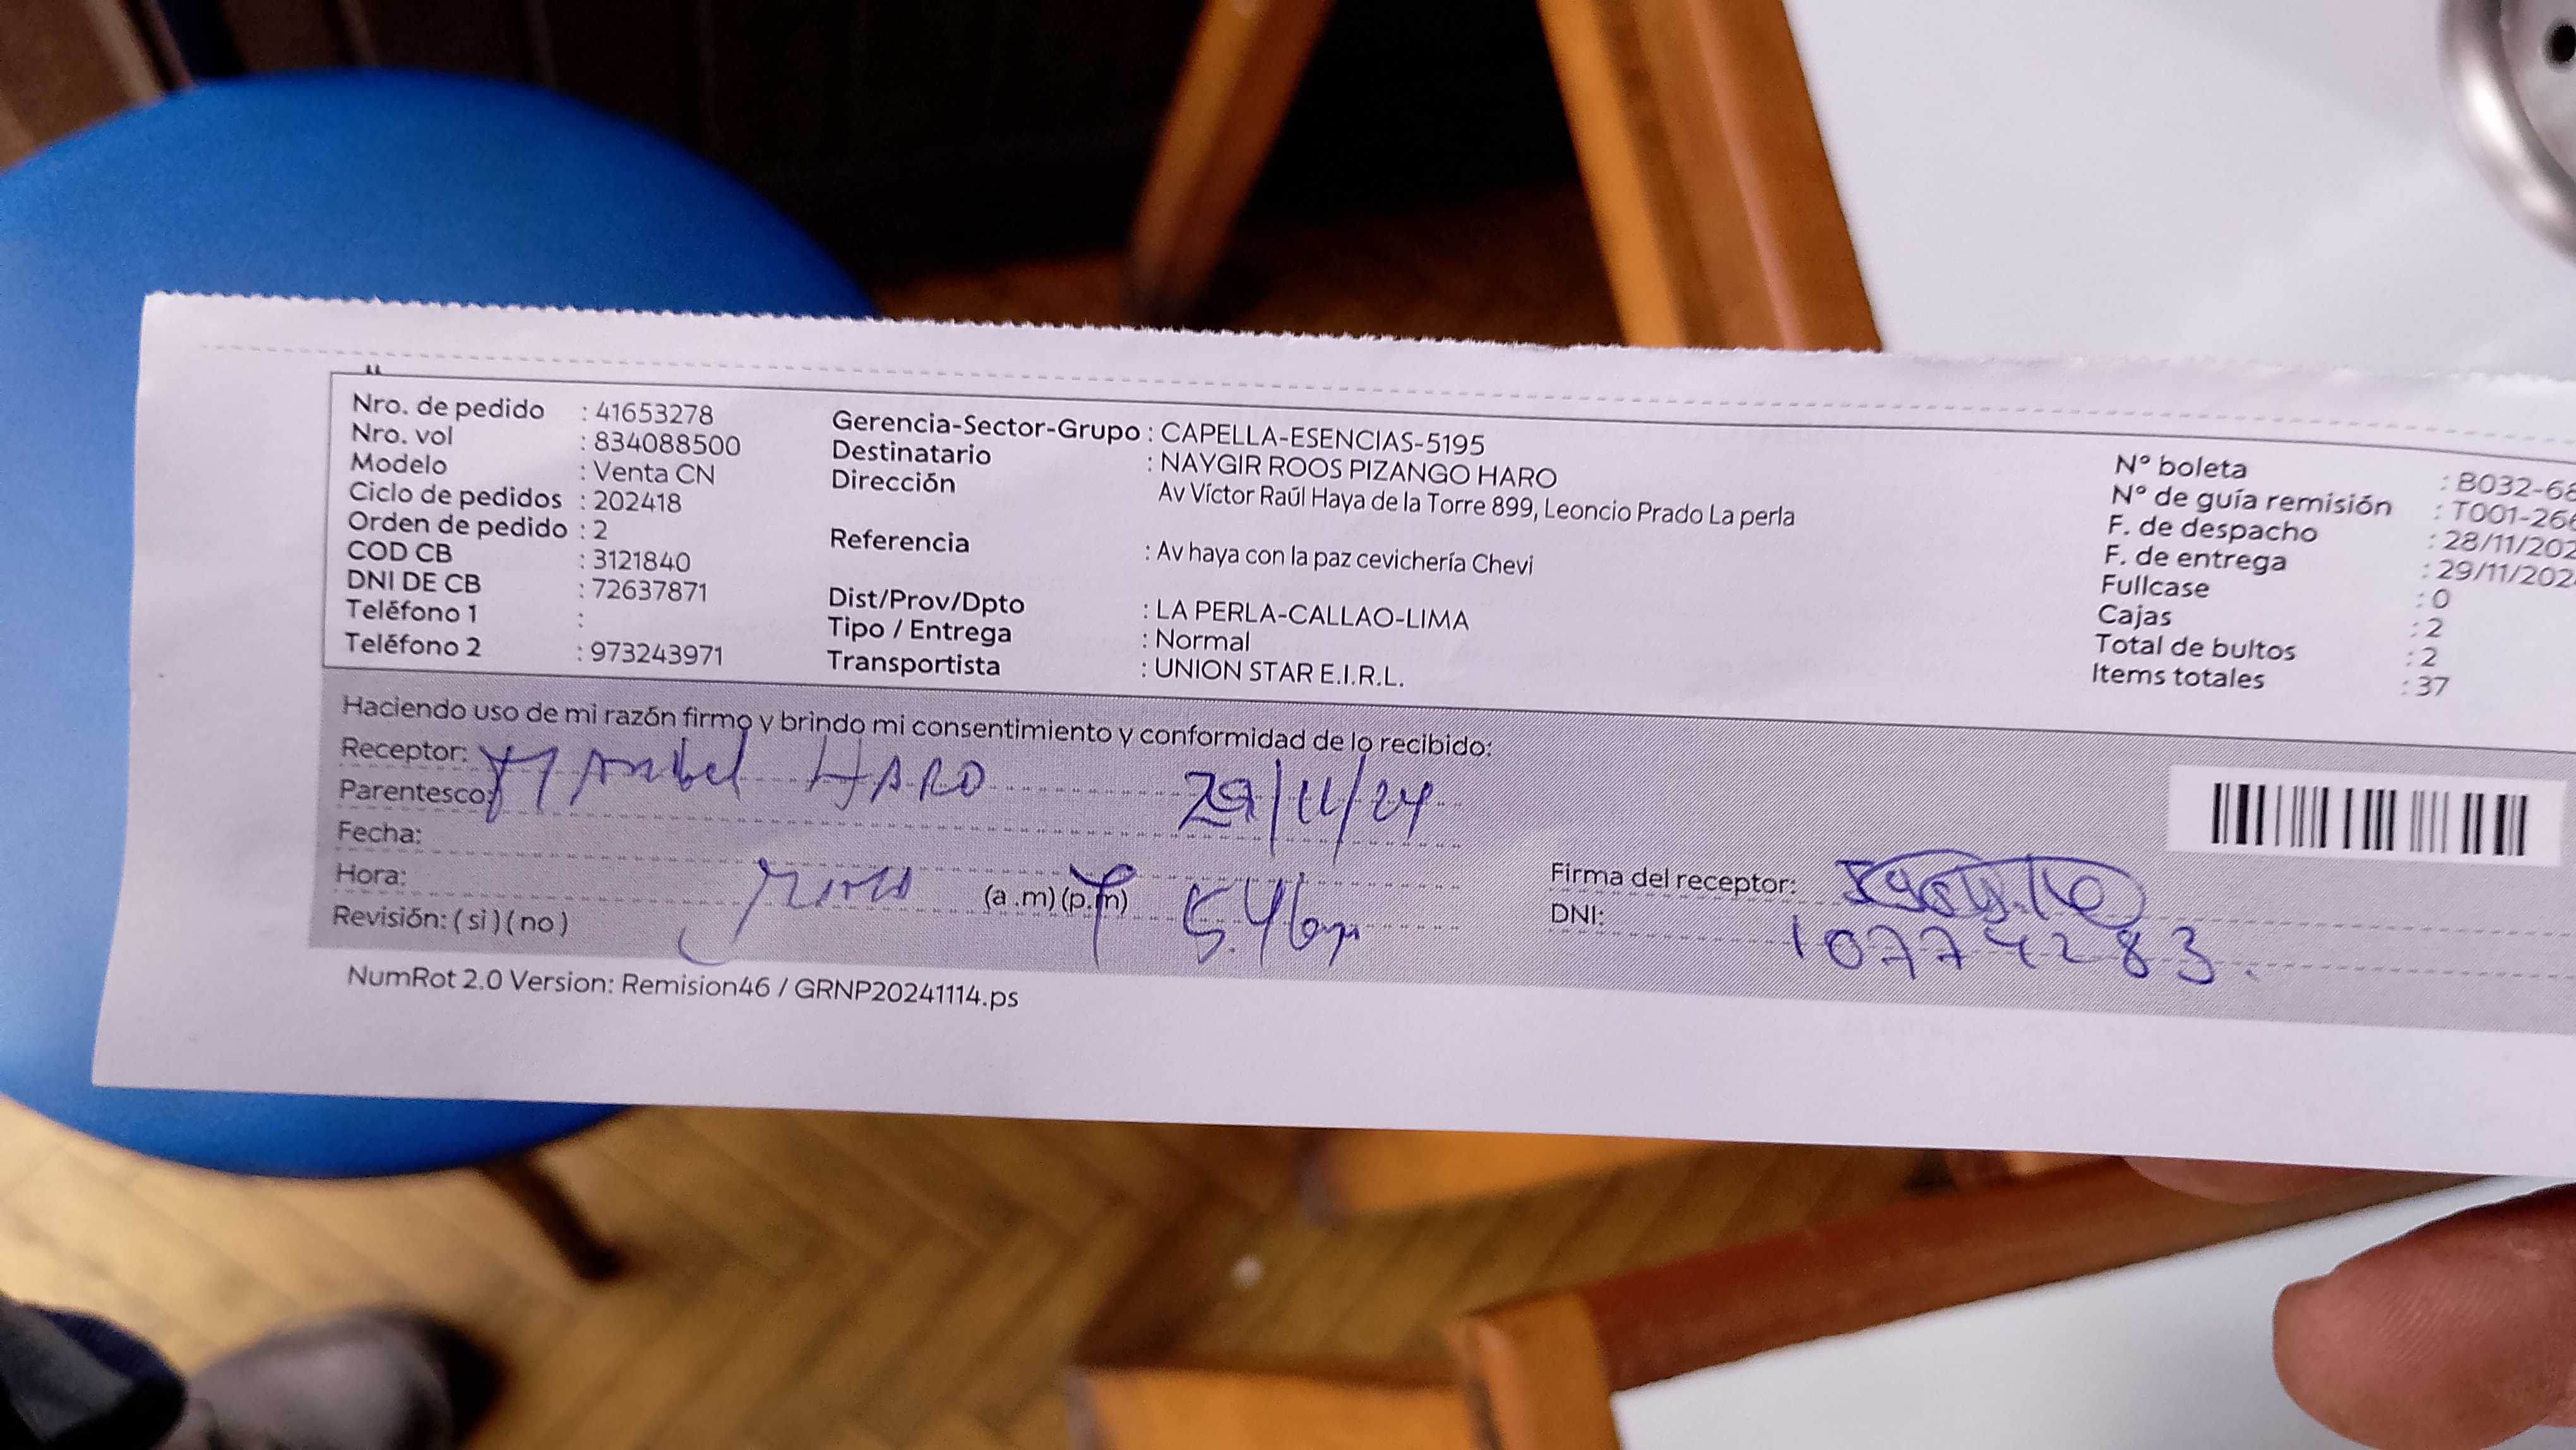 Nro. de pedido : 41653278
Nro. vol : 834088500
Modelo : Venta CN
Ciclo de pedidos : 202418
Orden de pedido : 2
COD CB : 3121840
DNI DE CB : 72637871
Teléfono 1 :
Teléfono 2 : 973243971
Gerencia-Sector-Grupo : CAPELLA-ESENCIAS-5195
Destinatario : NAYGIR ROOS PIZANGO HARO
Dirección Av Víctor Raúl Haya de la Torre 899, Leoncio Prado La perla
Referencia : Av haya con la paz cevichería Chevi
Dist/Prov/Dpto : LA PERLA-CALLAO-LIMA
Tipo / Entrega : Normal
Transportista : UNION STAR E.I.R.L.
N° boleta : B032-68
N° de guía remisión : T001-266
F. de despacho : 28/11/202
F. de entrega : 29/11/202
Fullcase : 0
Cajas : 2
Total de bultos : 2
Items totales : 37
Haciendo uso de mi razón firmo y brindo mi consentimiento y conformidad de lo recibido:
Receptor: HARO
Parentesco:
29/11/24
Fecha:
Hora: (a .m) (p.m) 5.46pm
Revisión: ( si ) ( no )
Firma del receptor:
DNI: 10774283.
NumRot 2.0 Version: Remision46 / GRNP20241114.ps